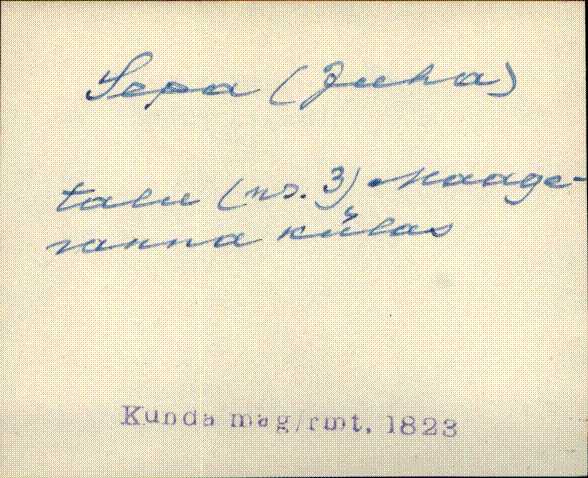 Sepa (Juha)
talu (nr. 3) Haage-
ranna külas
Kunda mag/rmt. 1823